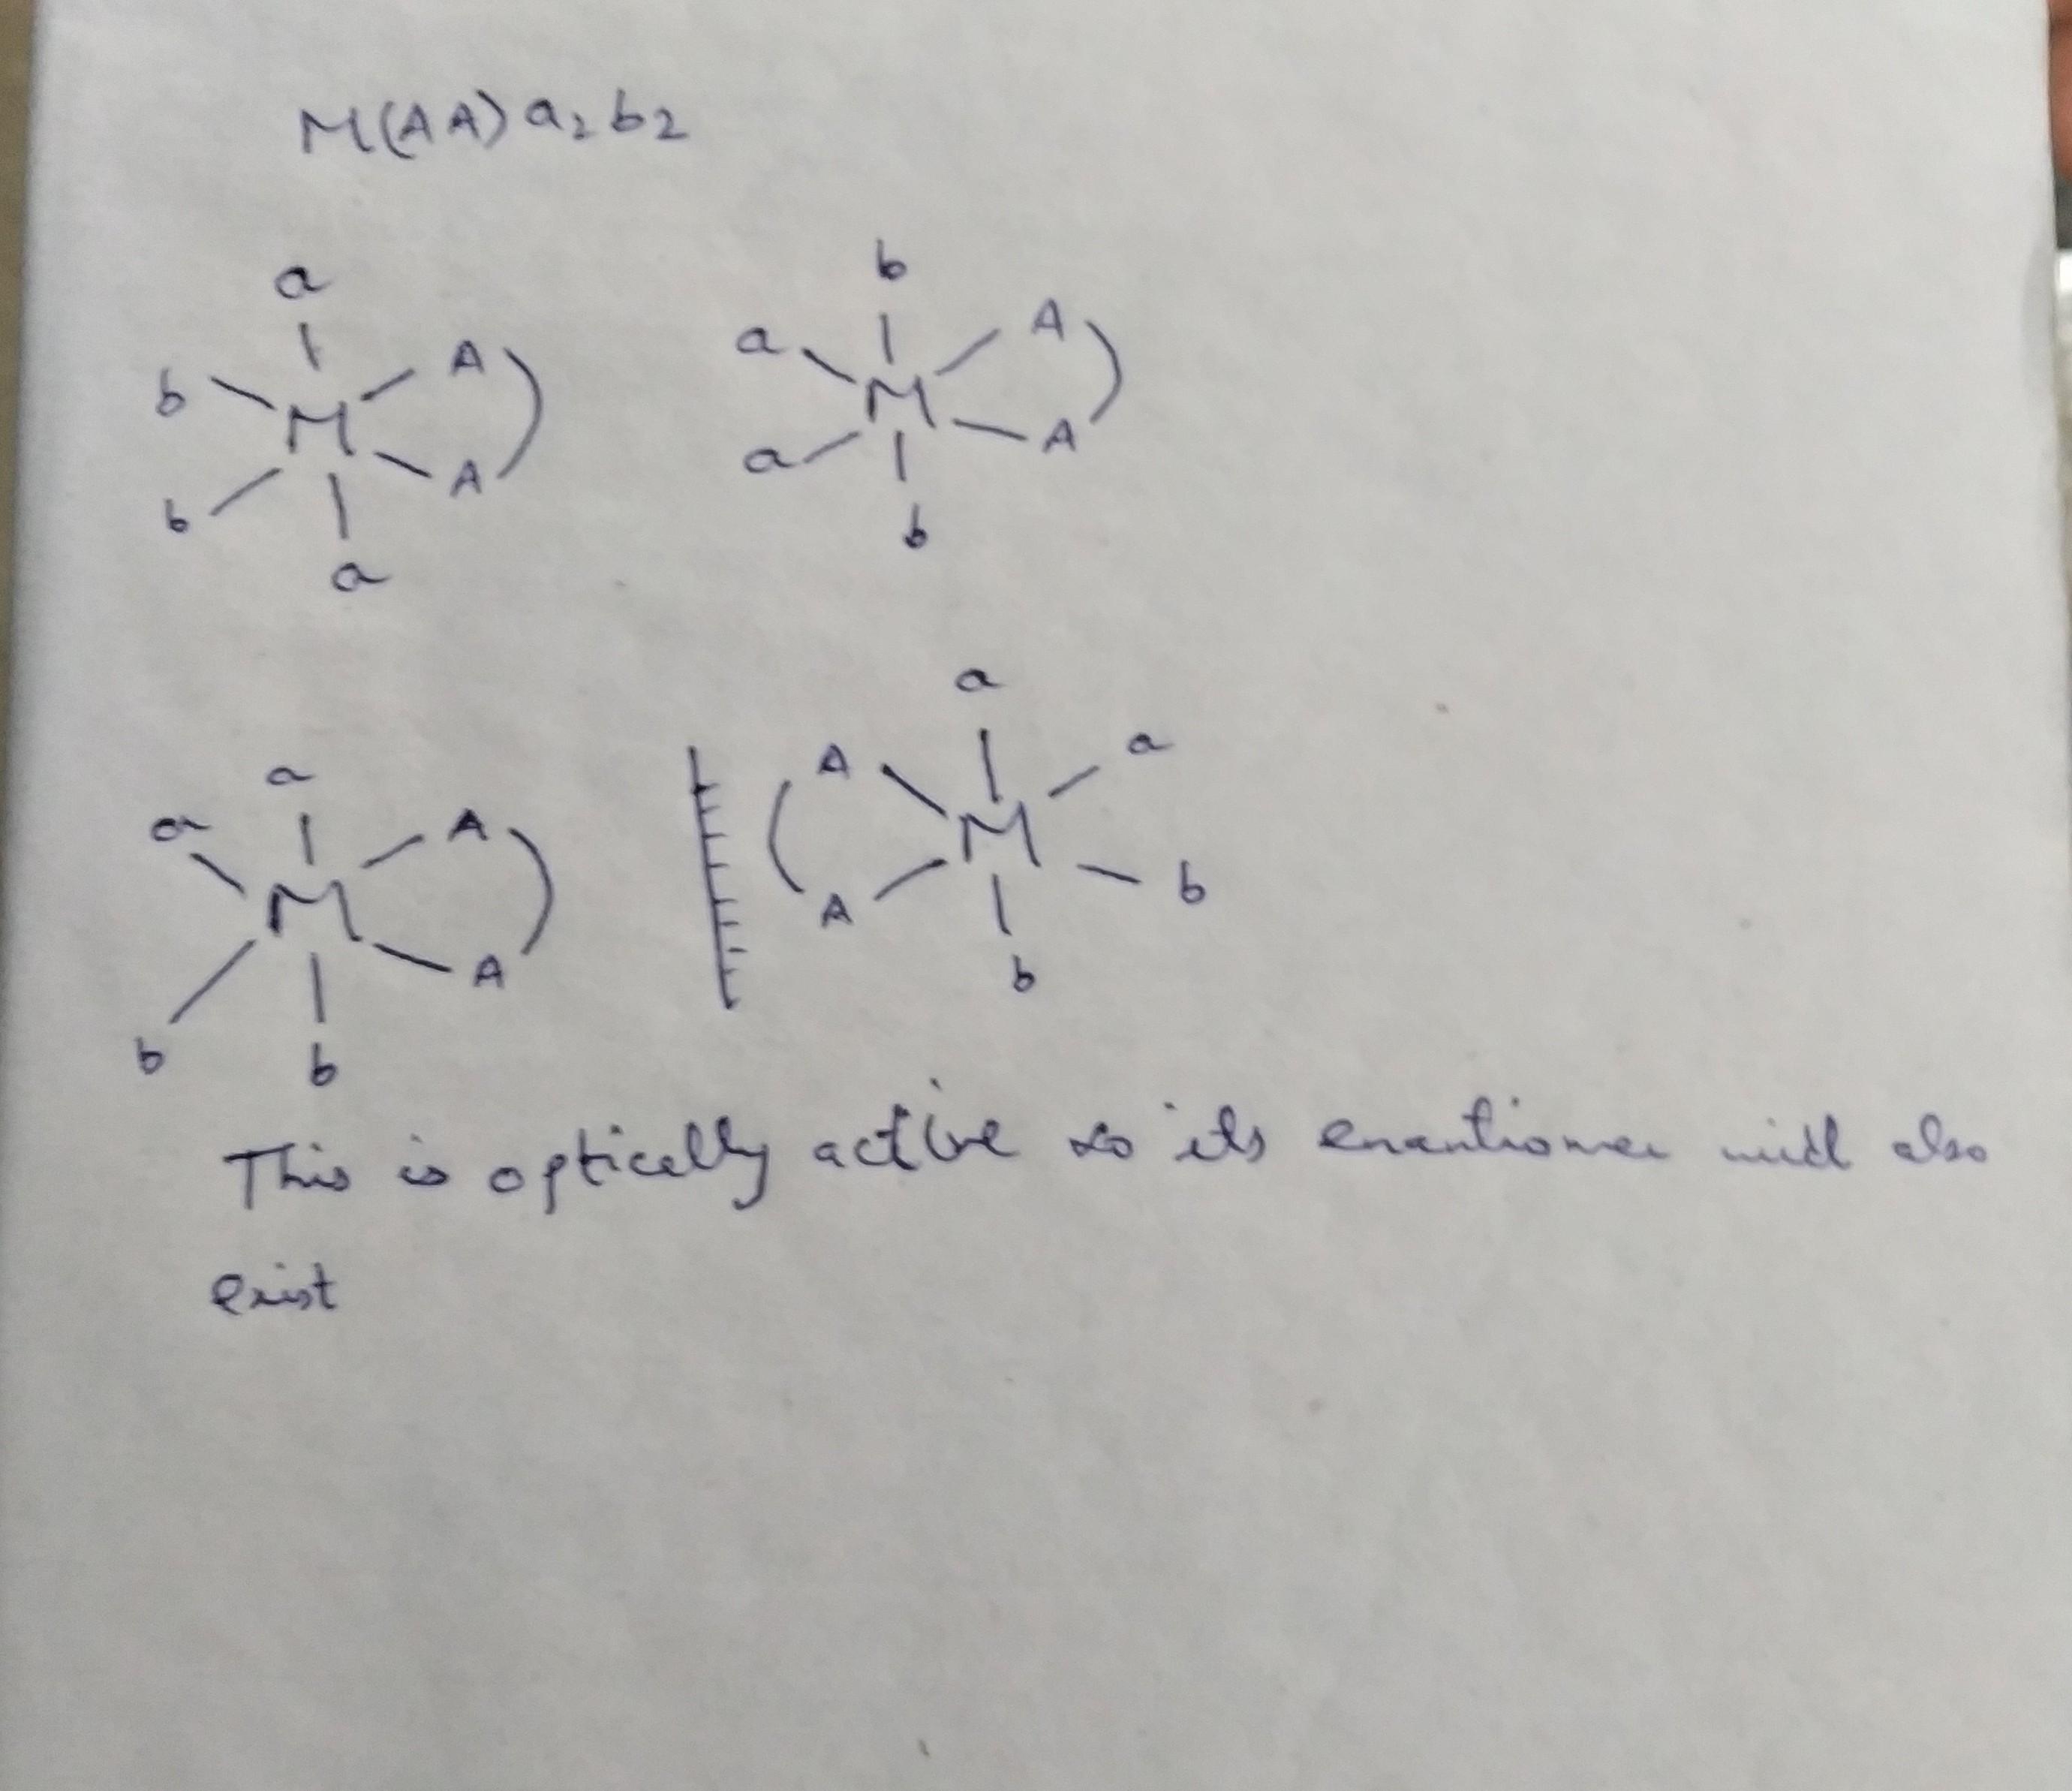 M(AA)a₂b₂
a
b M A
b A
a
b
a A
a M A
b
a
a A
M
b b A
a
A a
M
A b
b
This is optically active so its enantiomer will also
exist